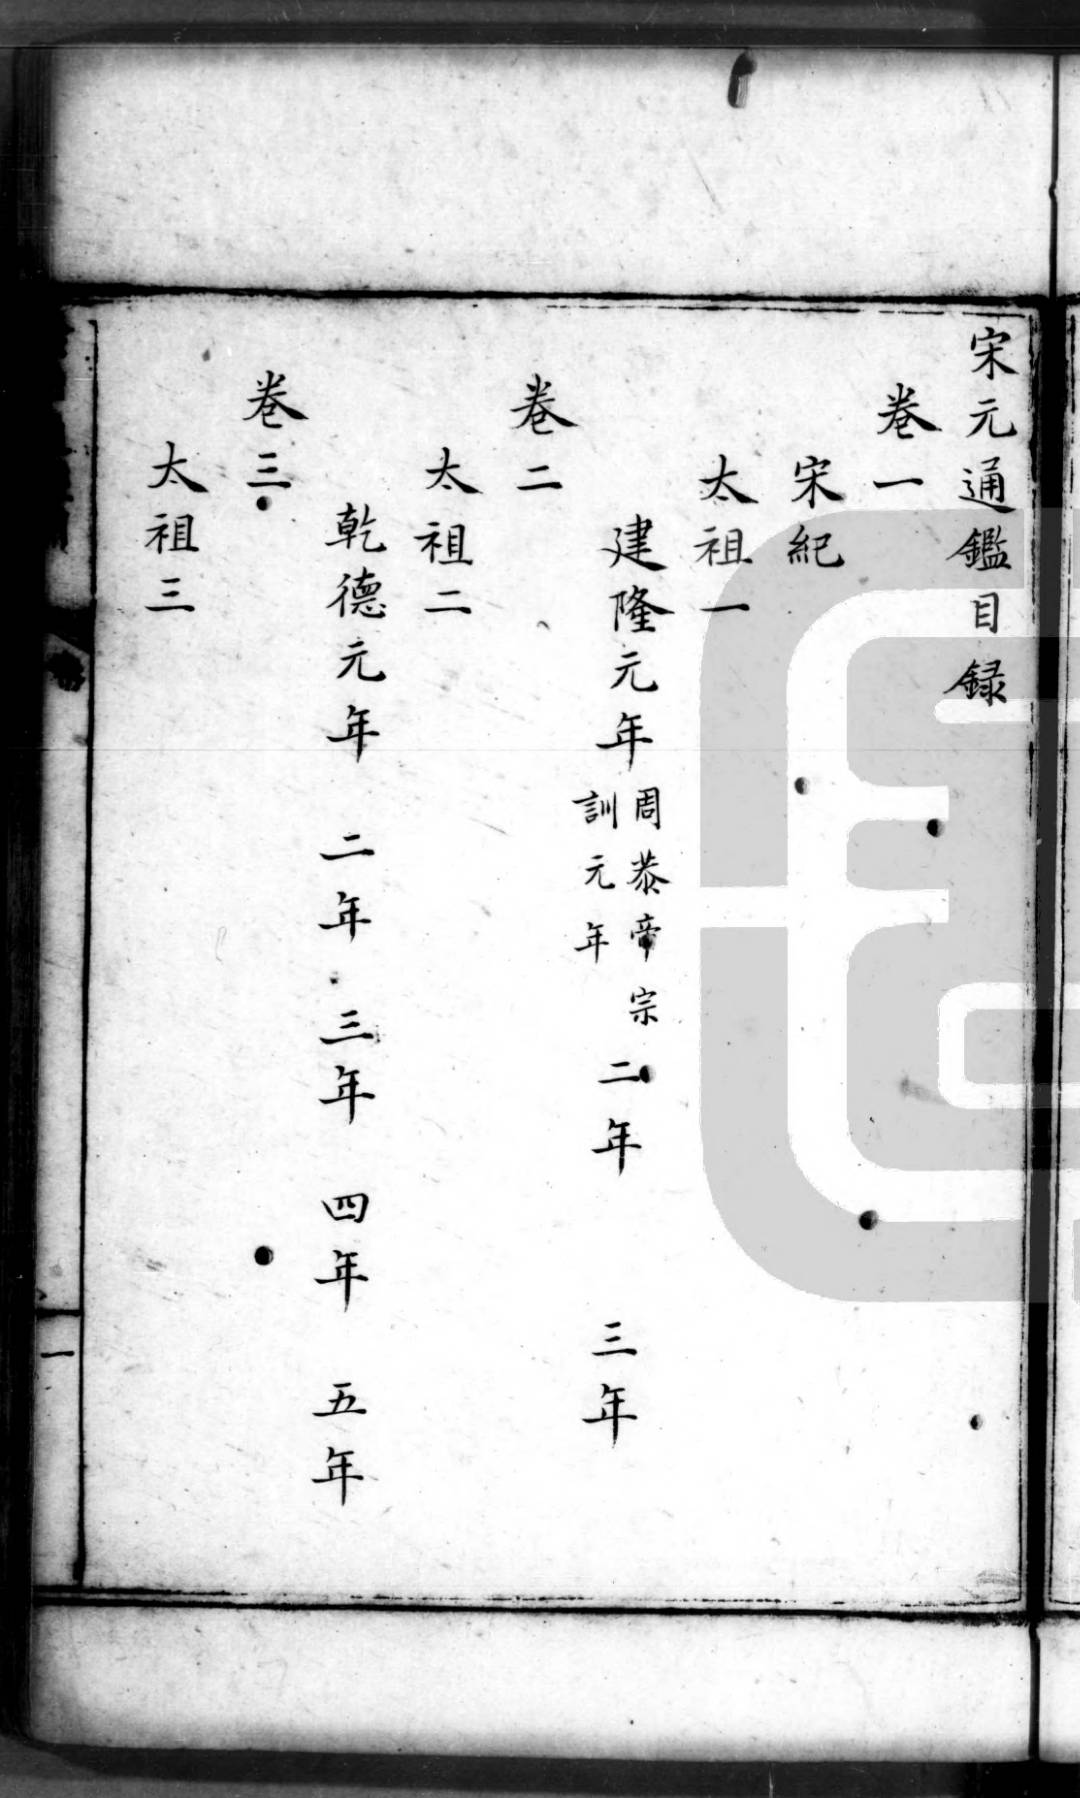 宋元通鑑目録
卷一
宋紀
太祖一
建隆元年周恭帝宗訓元年 二年 三年
卷二
太祖二
乾德元年 二年 三年 四年 五年
卷三
太祖三
一